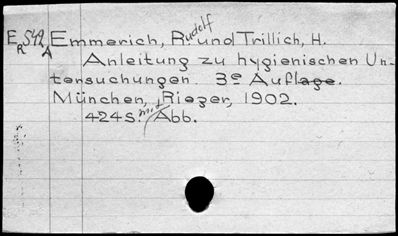 E 542 Emmerich, Rudolf und Trillich, H.
R A
Anleitung zu hygienischen Un-
tersuchungen. 3e Auflage.
München, Rieger, 1902.
424S. mit Abb.